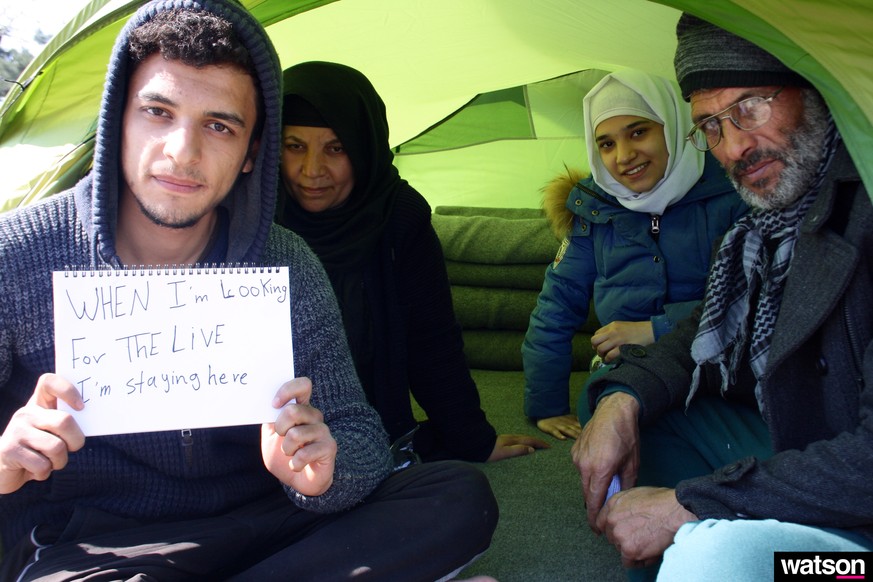 WHEN I'm Looking
For THE LIVE
I'm staying here
watson